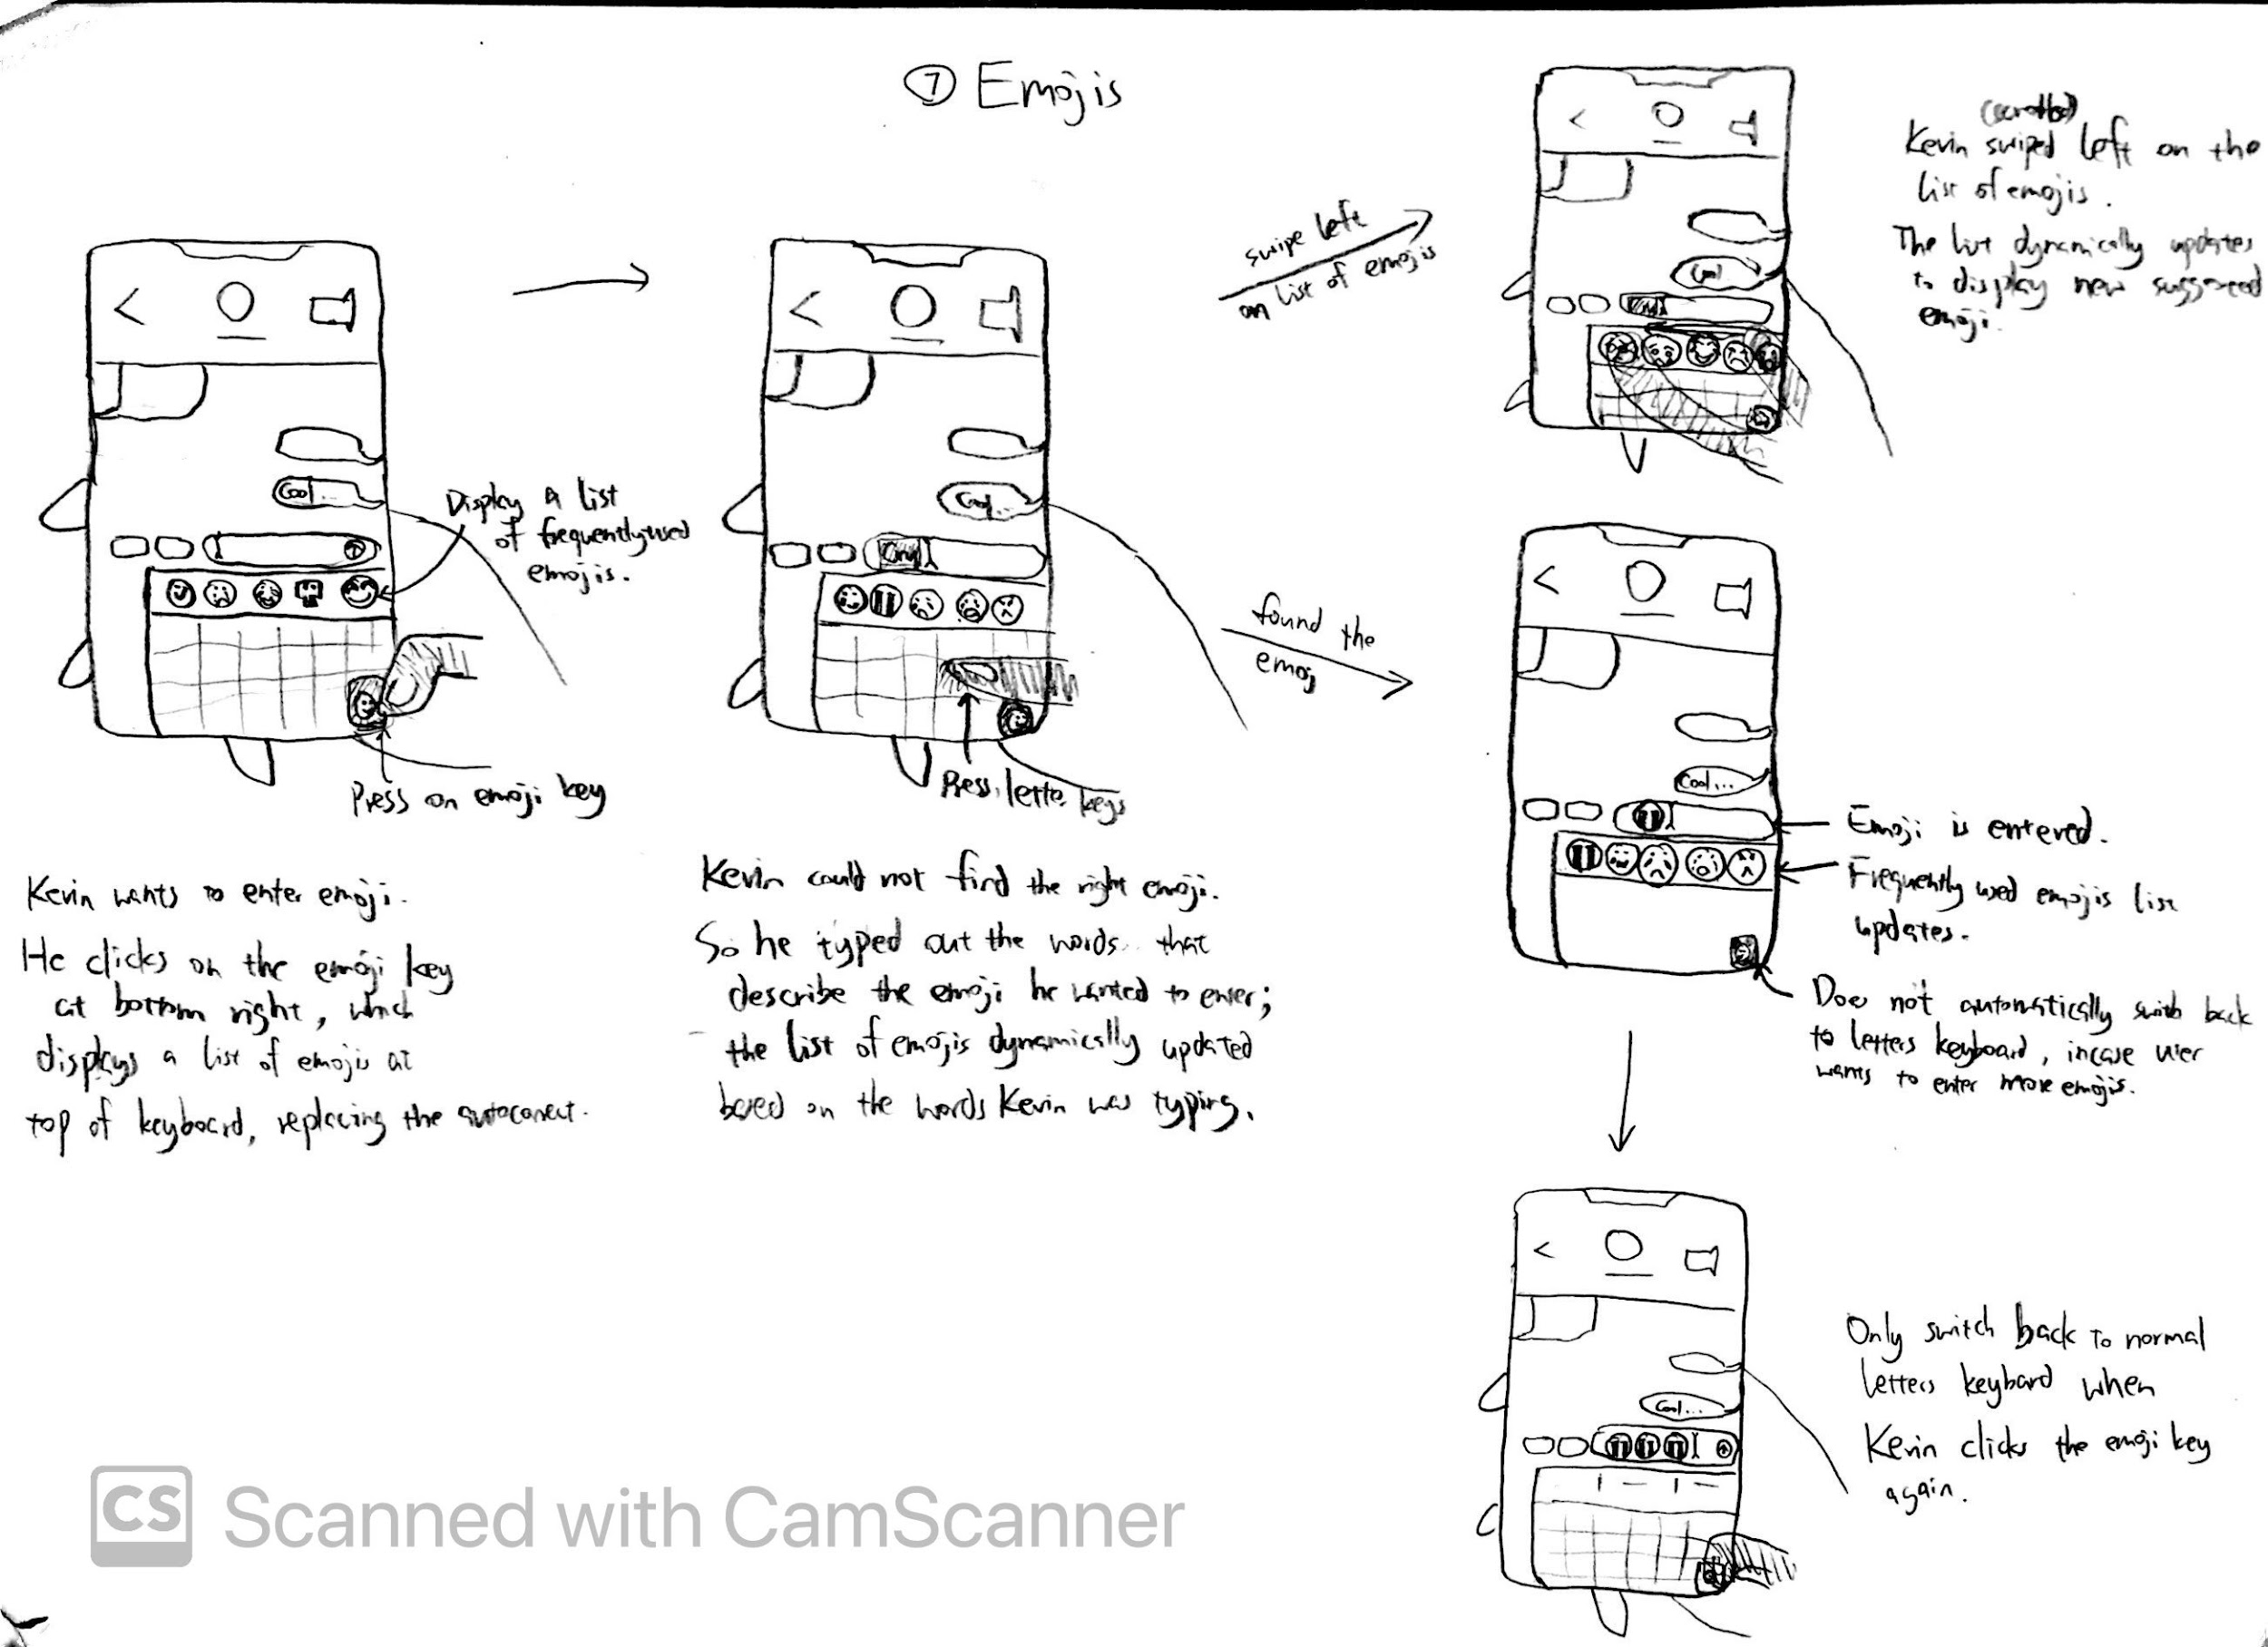 ⑦ Emojis
Display a list
of frequently used
emojis.
Coo
Press on emoji key
Kevin wants to enter emoji.
He clicks on the emoji key
at bottom right, which
displays a list of emojis at
top of keyboard, replacing the autocorrect.
Cool..
Press lette keys
Kevin could not find the right emoji.
So he typed out the words that
describe the emoji he wanted to enter;
the list of emojis dynamically updated
based on the words Kevin was typing.
swipe left
on list of emojis
Kevin swiped left on the
list of emojis.
The list dynamically updates
to display new suggested
emoji.
found the
emoj
Cool...
Emoji is entered.
Frequently used emojis list
updates.
Does not automatically swith back
to letters keyboard, incase user
wants to enter more emojis.
Cool...
Only switch back to normal
letters keyboard when
Kevin clicks the emoji key
again.
CS Scanned with CamScanner